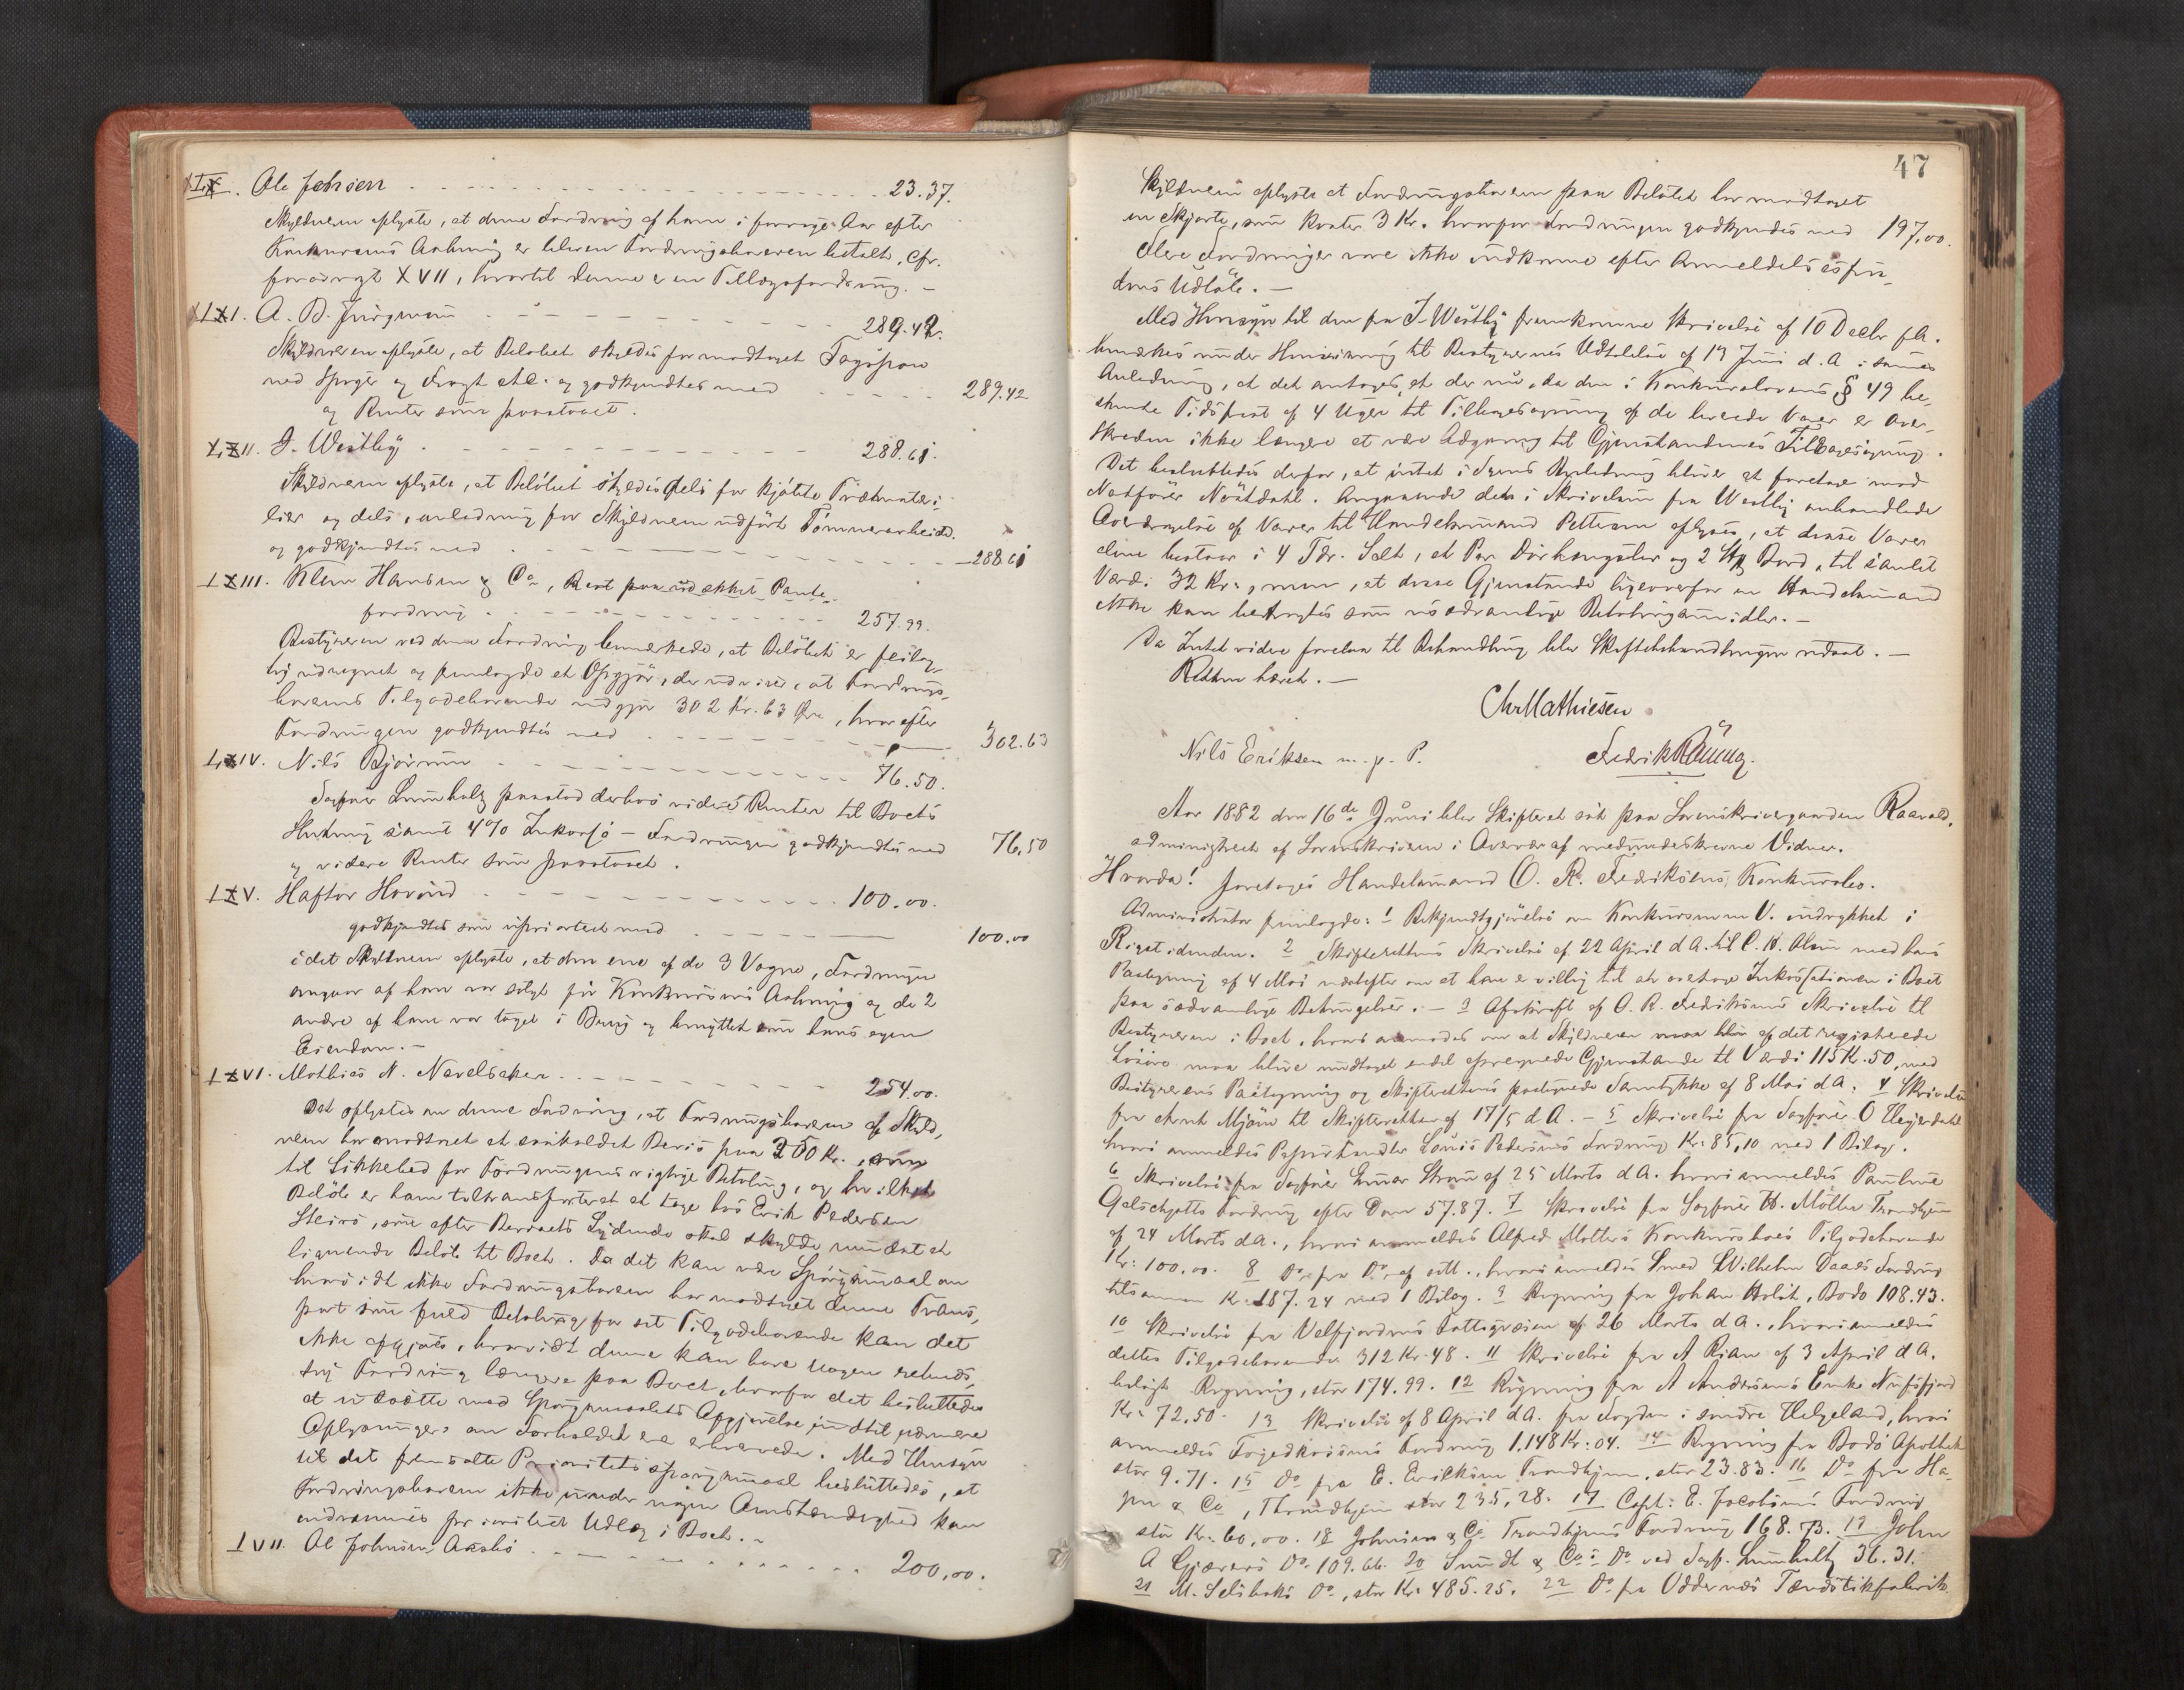 LX. Ole Johnsen 23.37.
Skyldneren oplyste, at denne Fordring af ham i forrige Aar efter
Konkursens Aabning er bleven Fordringshaveren betalt, cfr.
foranvngt XVII, hvortil denne er en Tillægsfordring. –
LXI. A. B. Jürgensen 289.42.
Skyldneren oplyste, at Beløbet skyldes for modtaget Tagspon
med Spiger og Fragt etc. og godkjendtes med 289.42
og Renter som paastaaet.
LXII. J. Westby 288.61.
Skyldneren oplyste, at Beløbet skyldes dels for kjøbte Træmateri-
lier og dels i anledning for Skyldneren udført Tømmerarbeide.
og godkjendtes med 288.61
LXIII. Klem Hansen & Co, Rest paa udækket Pante-
fordring 257.99.
Bestyreren ved denne Fordring bemærkede, at Beløbet er feilag-
tig udregnet og fremlagde et Opgjør, der udviser, at Fordrings-
haverens Tilgodehavende udgjør 302 Kr. 63 Øre, hvorefter
Fordringen godkjendtes med 302.63
LXIV. Nils Bjørnum 76.50.
Sagfører Lumholtz paastod derhos videre Renter til Boets
Slutning samt 4% Inkasso – Fordringen godkjendtes med 76,50
og videre Renter som paastaaet.
LXV. Haftor Hovind 100.00.
godkjendtes som uprioritert med 100.00
idet Skyldneren oplyste, at den ene af de 3 Vogne, Fordringen
angaar af ham var solgt før Konkursens Aabning og de 2
andre af ham var taget i Brug og benyttet som hans egen
Eiendom. –
LXVI. Mathias N. Nevelsaker 254.00.
Det oplystes om denne Fordring, at Fordringshaveren af Skyld-
neren har modtaget et saakaldet Bevis paa 250 Kr., som
til Sikkerhed for Fordringens rigtige Betaling, og hvilket
Beløb er ham tiltransporteret at tage hos Erik Pedersen
Steiro, som efter Bevisets Lydende skal skylde mindst et
lignende Beløb til Boet. Da det kan være Spørgsmaal om
hvorvidt ikke Fordringshaveren har modtaget denne Trans-
port som fuld Betaling for sit Tilgodehavende kan det
ikke afgjøres, hvorvidt denne kan have nogen retmæs-
sig Fordring længere paa Boet, hvorfor det besluttedes
at udsætte med Spørgsmaalets Afgjørelse indtil nærmere
Oplysninger om Forholdet ere erhvervede. Med Hensyn
til det fremsatte Prioritetsspørgsmaal besluttedes, at
Fordringshaveren ikke under nogen Omstændighed kan
indrømmes prioritert Udlæg i Boet. –
LXVII. Ole Johnsen 200,00.
47
Skyldneren oplyste at Fordringshaveren paa Beløbet har modtaget
en Skjorte, som koster 3 Kr. hvorfor Fordringen godkjendes med 197,00.
Flere Fordringer vare ikke indkomne efter Anmeldelsesfri-
stens Udløb. –
Med Hensyn til den fra J. Westby fremkomne Skrivelse af 10 Decbr f.A.
bemærkes under Henvisning til Bestyrerens Udtalelse af 19 Juni d. A i samme
Anledning, at det antages, at der nu, da den i Konkurslovens § 49 be-
stemte Tidsfrist af 4 Uger til Tilbagesøgning af de leverede Varer er over-
skreden ikke længere at være Adgang til Gjenstandenes Tilbagesøgning.
Det besluttedes derfor, at intet i Sagens Anledning bliver at foretage mod
Notfører Nostdahl. Angaaende den i Skrivelsen fra Westby omhandlede
Overdragelse af Varer til Handelsmand Pettersen oplyses, at disse Varer
alene bestaar i 4 Tdr. Salt, et Par Dørhængsler og 2 Stk Bord, til samlet
Værdi 32 Kr., men, at disse Gjenstande ligeoverfor en Handelsmand
ikke kan betragtes som usædvanlige Betalingsmidler. –
Da Intet videre forelaa til Behandling blev Skiftebehandlingen udsat. –
Retten hævet. –
Chr Mathiesen
Nils Eriksen m. p. P. Fredrik Rønning.
Aar 1882 den 16de Juni blev Skifteret sat paa Sorenskrivergaarden Raavold,
administreret af Sorenskriveren i Overvær af medundeskrevne Vidner.
Hvorda! foretages Handelsmand O. R. Fredriksens Konkursbo.
Administrator fremlagde: 1 Bekjendtgjørelse om Konkursen V. indrykket i
Rigstidenden. 2 Skifterettens Skrivelse af 22 April d A. til C. K. Olsen med hans
Paategning af 4 Mai næstefter om at han er villig til at overtage Inkassationen i Boet
paa sædvanlige Betingelser. – 3 Afskrift af O. R. Fredriksens Skrivelse til
Bestyreren i Boet, hvori anmodes om at Skyldneren maa blive af det registrerede
Løsøre maa blive undtaget endel opregnede Gjenstande til Værdi 115 Kr. 50, med
Bestyrerens Paategning og Skifterettens paategnede Samtykke af 8 Mai d A. 4 Skrivelse
fra Arnt Mjøen til Skifteretten af 17/5 d A. – 5 Skrivelse fra Sagfører O Heyerdahl
hvori anmeldes Papirhandler Louis Pedersens Fordring Kr. 85,10 med 1 Bilag.
6 Skrivelse fra Sagfører Einar Strøm af 25 Marts d A. hvori anmeldes Pauline
Gjelschjøtts Fordring efter Dom 57.87. 7 Skrivelse fra Sagfører H. Møller Trondhjem
af 24 Marts d A., hvori anmeldes Alfred Møllers Konkursboes Tilgodehavende
Kr: 100.00. 8 Do fra Do af ditto., hvori anmeldes Smed Wilhelm Daaes Fordring
tilsammen Kr. 187.24 med 1 Bilag. 9 Regning fra Johan Holst, Bodø 108.43.
10 Skrivelse fra Velfjordens Fattigvæsen af 26 Marts d A., hvori anmeldes
dettes Tilgodehavende 312 Kr. 48. 11 Skrivelse fra A Rian af 3 April d A.
bilagt Regning, stor 174.99. 12 Regning fra A Andersens Enke Nufsfjord
Kr. 72,50. 13 Skrivelse af 8 April d A. fra Fogden i søndre Helgeland, hvori
anmeldes Fogedkassens Fordring 1.148 Kr: 04. 14 Regning fra Bodø Apothek
stor 9.71. 15 Do fra E. Erichsen Trondhjem, stor 23.83. 16 Do fra Ha-
gen & Co, Throndhjem stor 235,28. 17 Capt: E. Jacobsens Fordring
stor Kr. 60,00. 18 Johnsen & Co Trondhjems Fordring 168.73. 19 John
A Gjæraas Do 109.66. 20 Sundt & Co's Do ved Sagf. Lumholtz 36.31.
21 M. Selsbaks Do, stor Kr. 485.25. 22 Do fra Oddernæs Tændstikfabrik